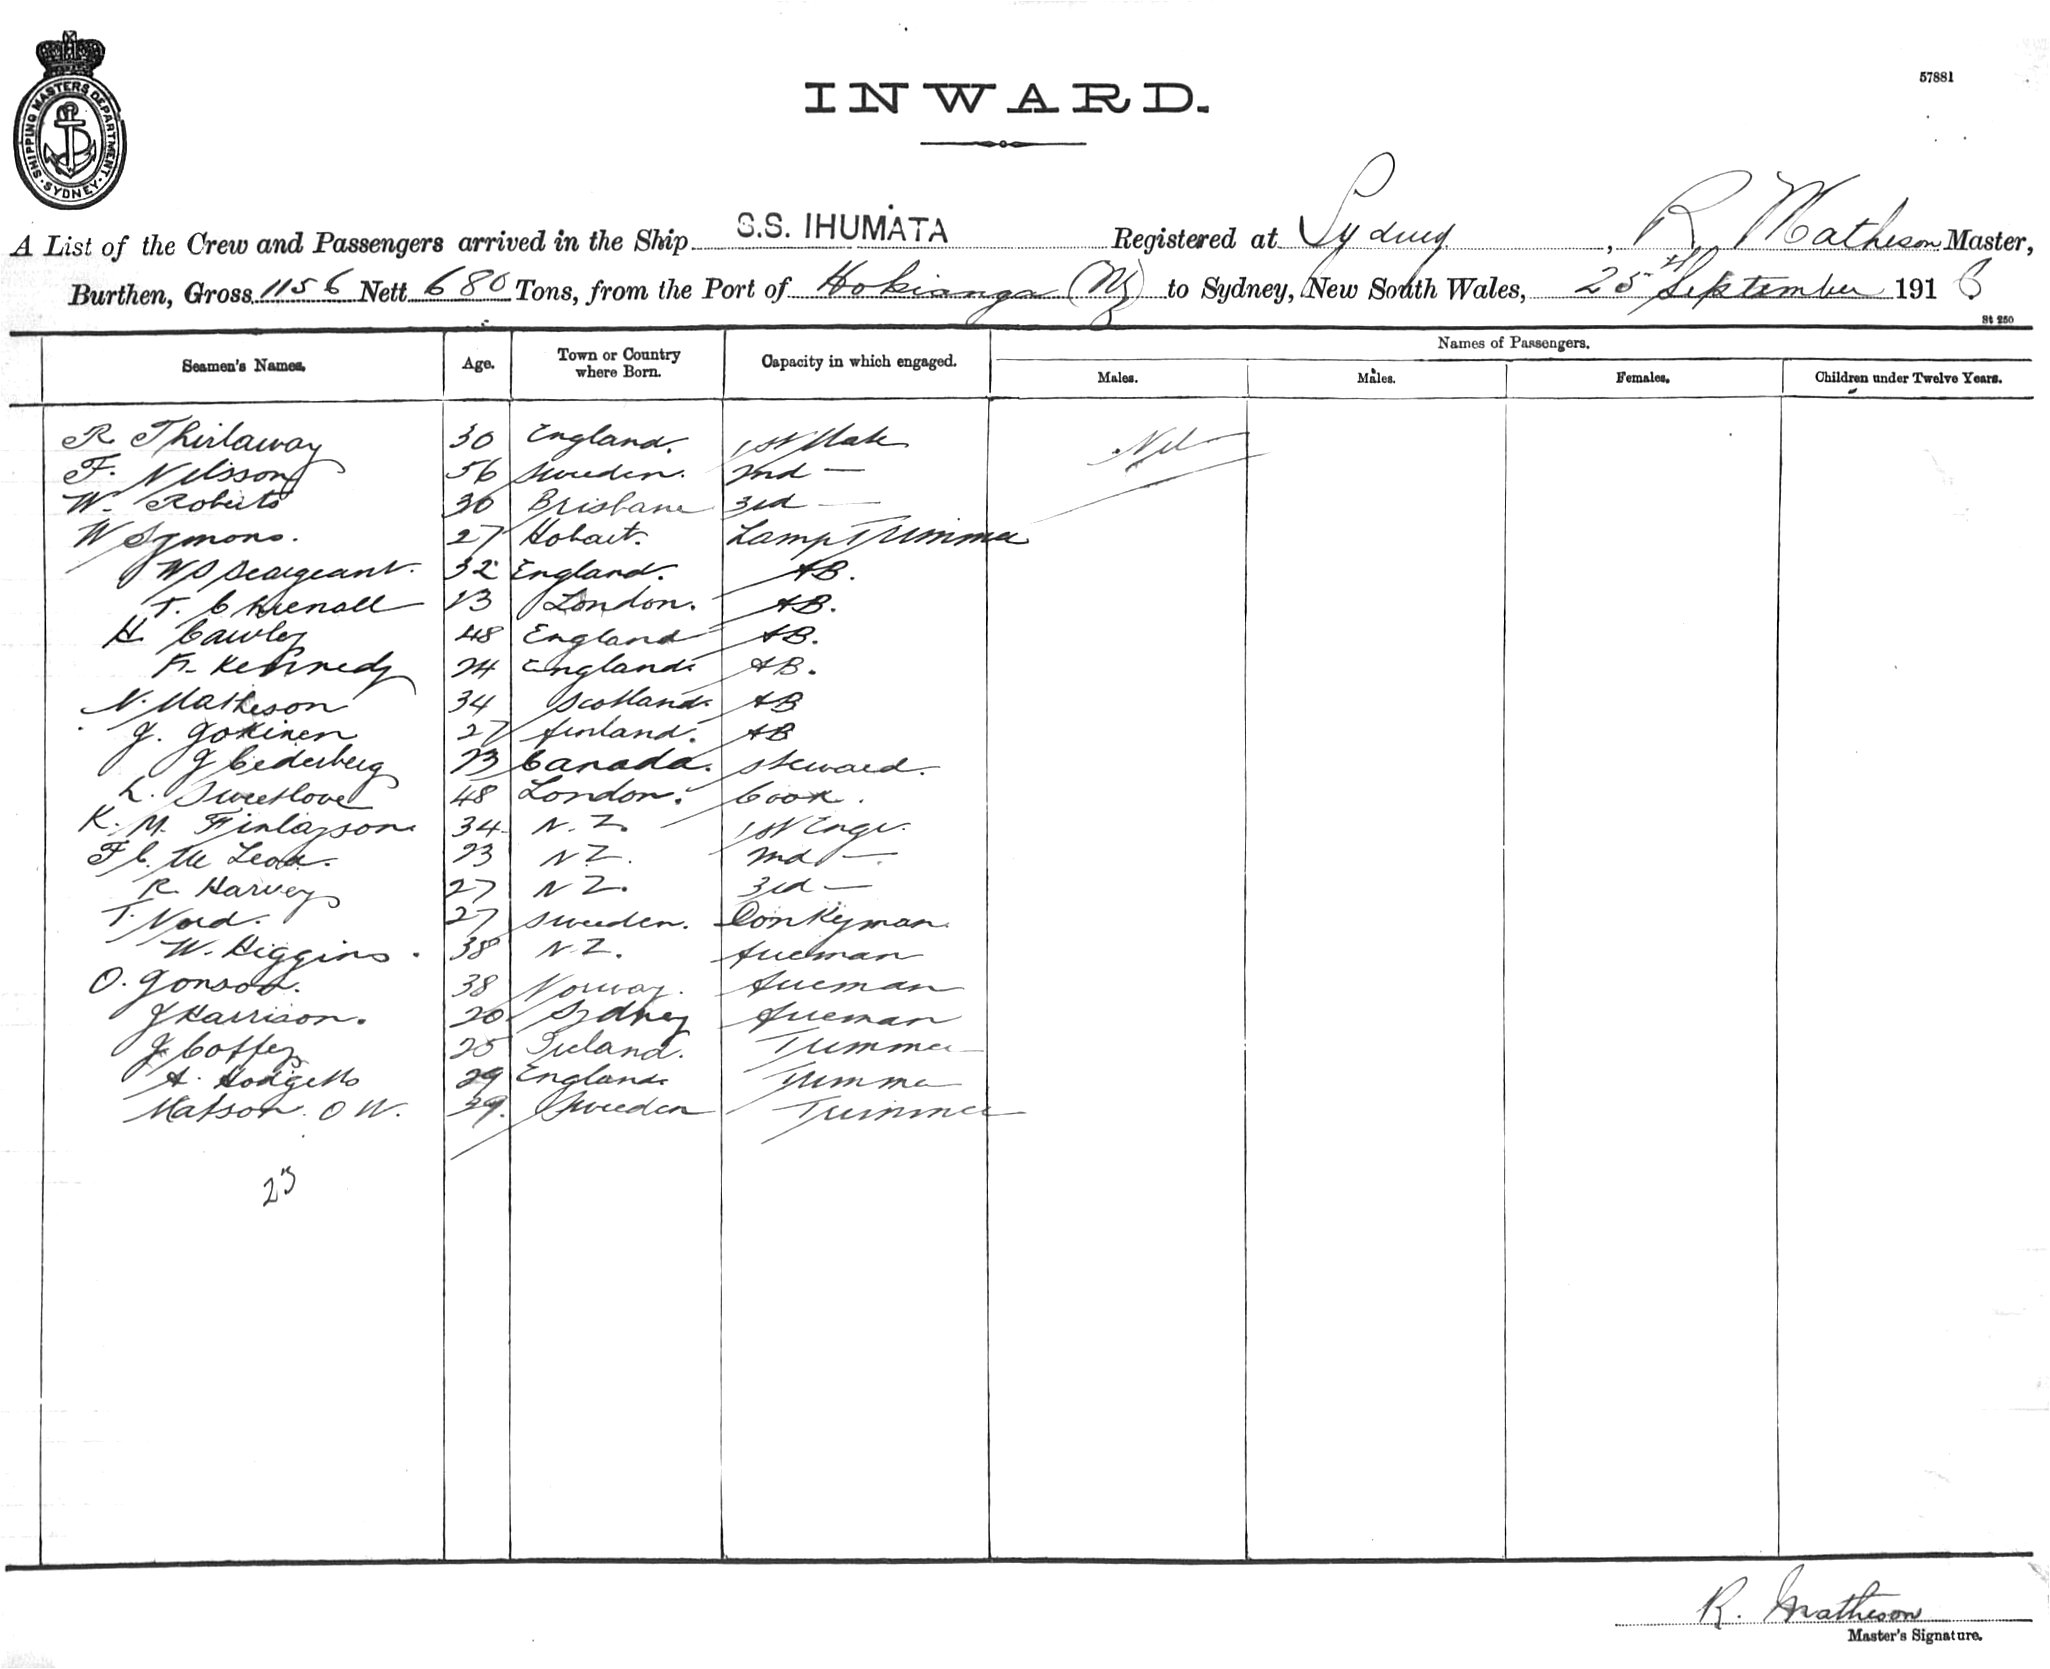 SHIPPING MASTERS DEPARTMENT. SYDNEY
57881
INWARD.
A List of the Crew and Passengers arrived in the Ship S.S. IHUMATA Registered at Sydney, R Matheson Master,
Burthen, Gross 1156 Nett 680 Tons, from the Port of Hokianga (NZ) to Sydney, New South Wales, 25th September 1916
St 250
Seamen's Names. Age. Town or Country where Born. Capacity in which engaged. Names of Passengers.
Males. Males. Females. Children under Twelve Years.
R Thirlaway 30 England. 1st Mate Nil
F. Nilsson 56 Sweden. 2nd —
W. Roberts 30 Brisbane 3rd —
W Symons. 27 Hobart. Lamp Trimmer
W S Seargeant. 32 England. AB.
T. 23 London. AB.
H Cawley 48 England AB.
Kennedy 24 England. AB.
N. Matheson 34 Scotland. AB
J. Jokinen 27 Finland. AB
J Cederberg 23 Canada. Steward.
L. Sweetlove 48 London. Cook.
K. M. Finlayson. 34 N.Z. 1st Engr.
F C. McLeod. 23 NZ. 2nd —.
R. Harvey 27 NZ. 3rd —
T. Nord. 27 Sweden. Donkyman.
W. Higgins. 38 N.Z. Fireman
O. Jonsson. 38 Norway. Fireman
J Harrison. 20 Sydney Fireman
J. Coffey 25 Ireland. Trimmer
A. Hodgetts 29 England. Trimmer
Matson. O W. 39. Sweden Trimmer
23
R. Matheson
Master's Signature.